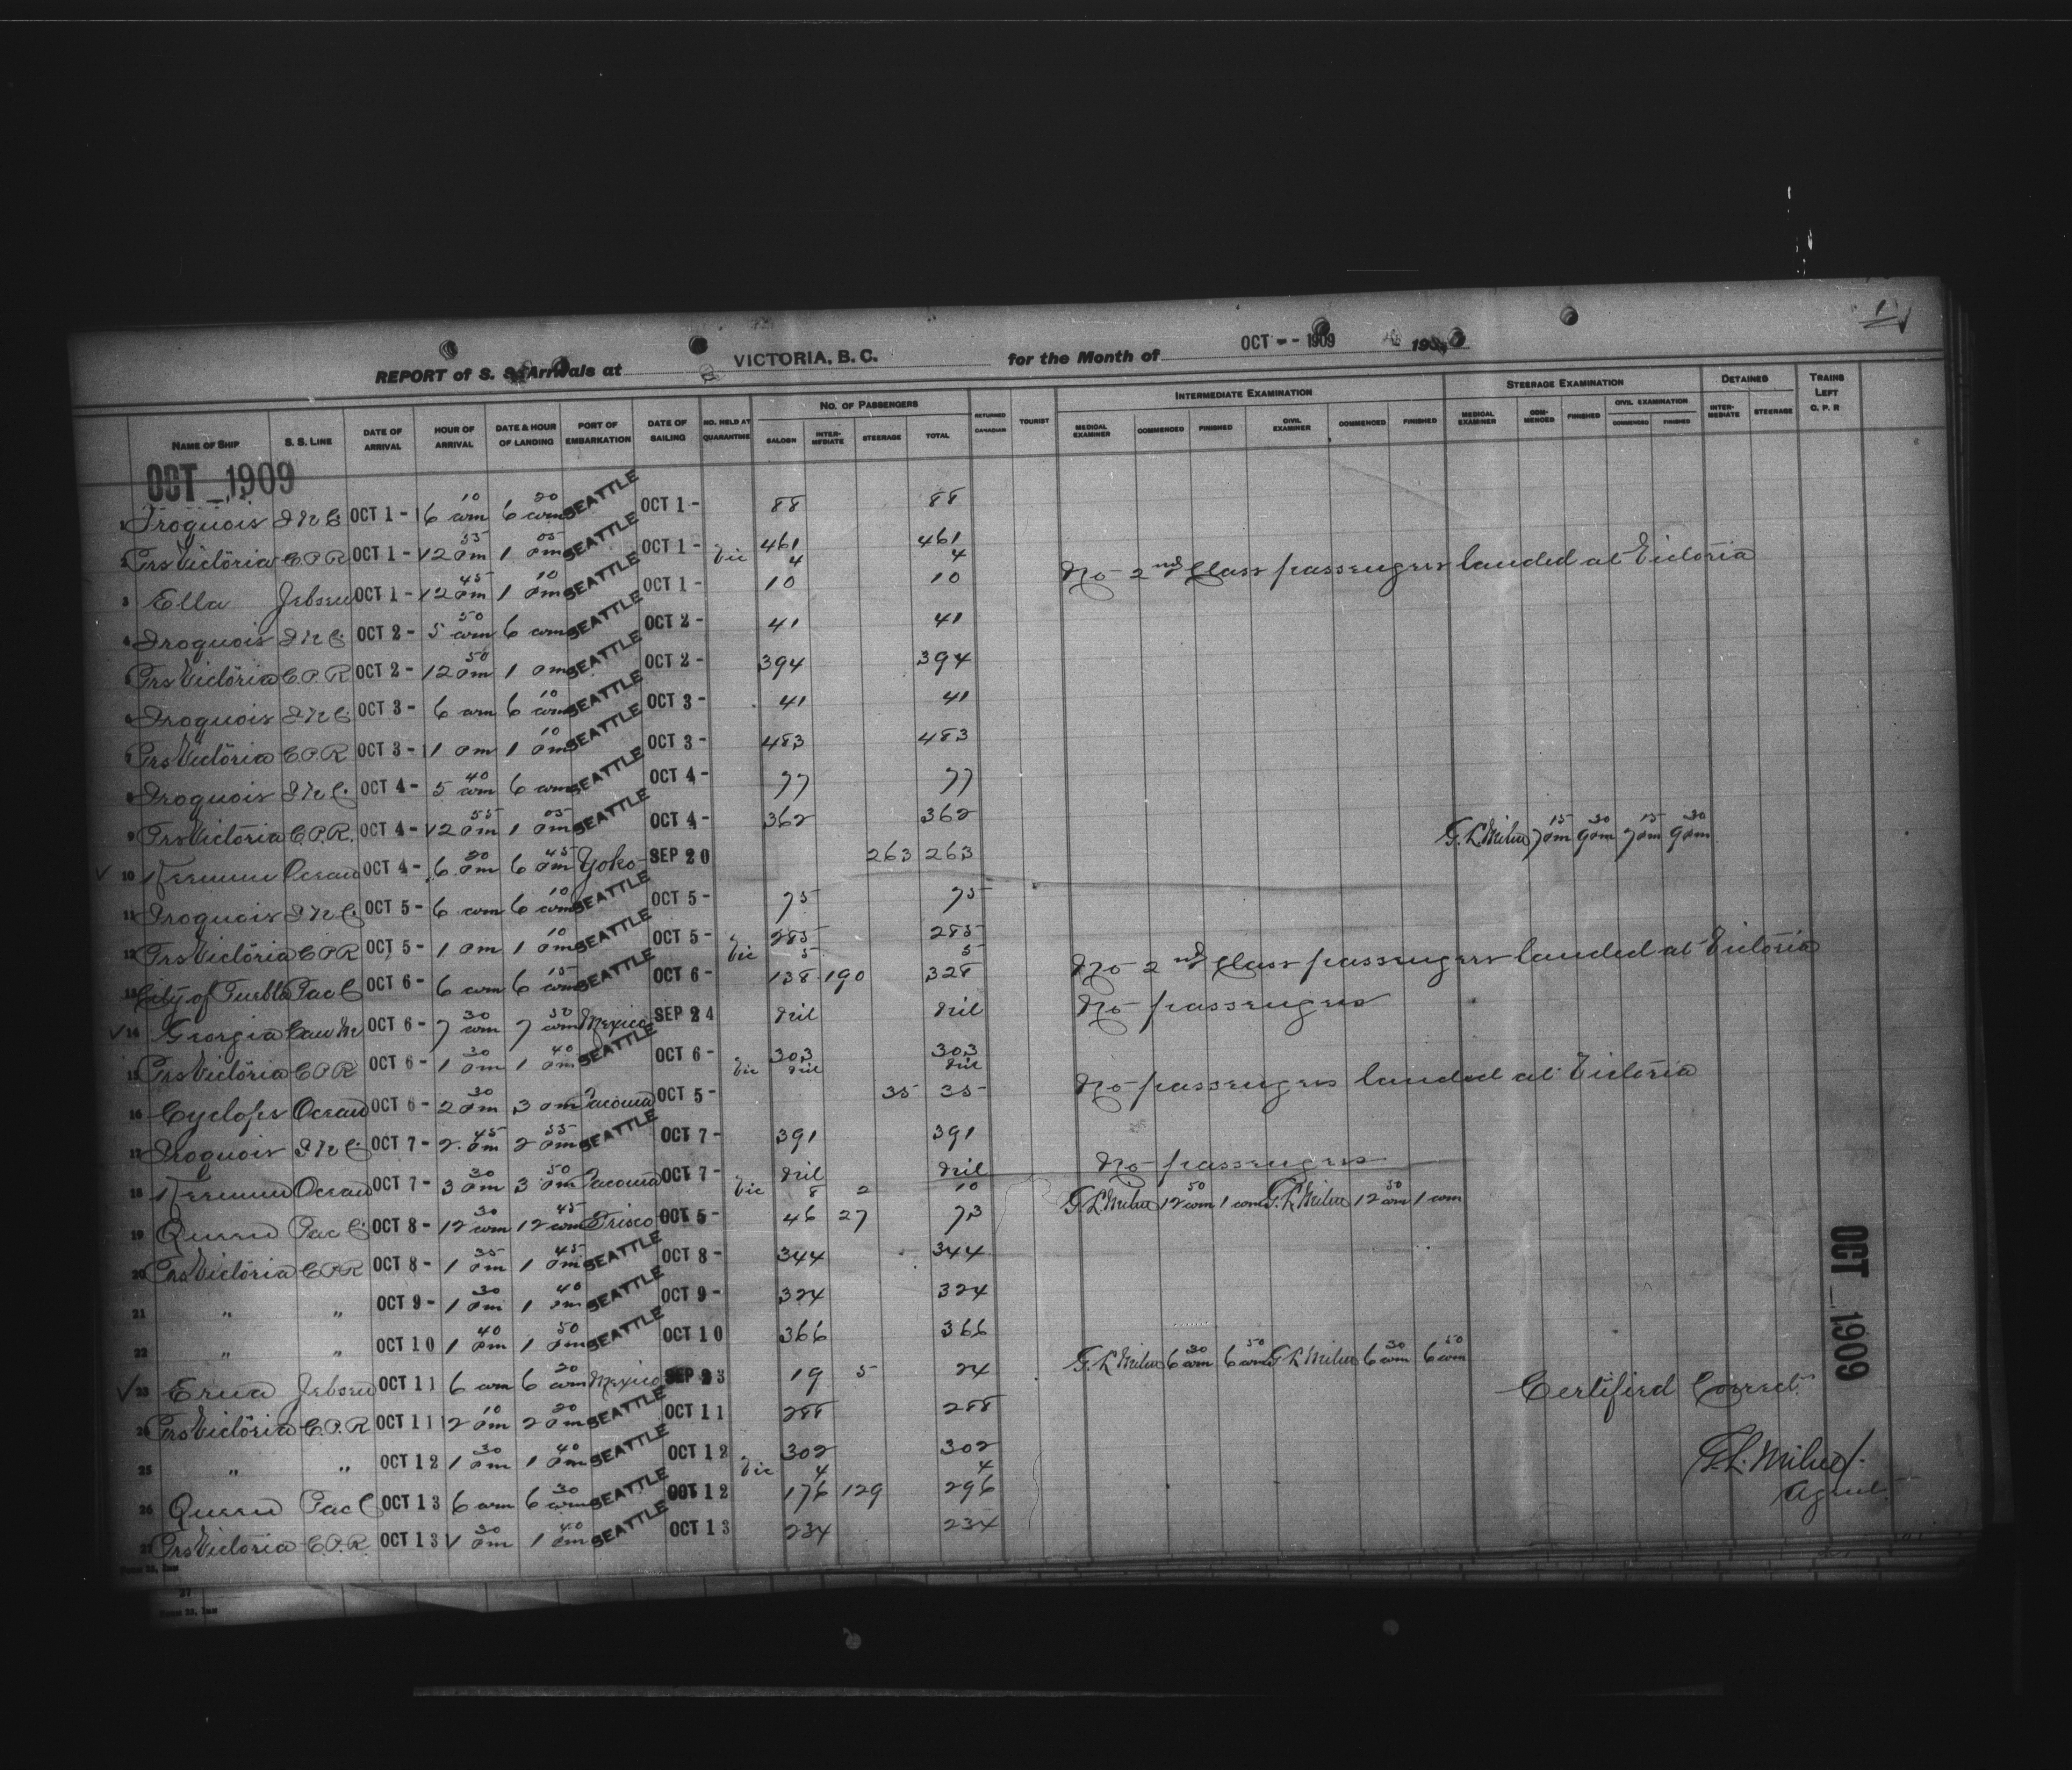 1
REPORT of S. S. Arrivals at VICTORIA, B. C. for the Month of OCT - - 1909 19
NAME OF SHIP S. S. LINE DATE OF ARRIVAL HOUR OF ARRIVAL DATE & HOUR OF LANDING PORT OF EMBARKATION DATE OF SAILING NO. HELD AT QUARANTINE NO. OF PASSENGERS SALOON INTERMEDIATE STEERAGE TOTAL RETURNED CANADIAN TOURIST INTERMEDIATE EXAMINATION MEDICAL EXAMINER COMMENCED FINISHED CIVIL EXAMINER COMMENCED FINISHED STEERAGE EXAMINATION MEDICAL EXAMINER COMMENCED FINISHED CIVIL EXAMINATION COMMENCED FINISHED DETAINED INTERMEDIATE STEERAGE TRAINS LEFT C. P. R
OCT _ 1909
1 Iroquois I N C OCT 1 - 6 10 am 6 20 am SEATTLE OCT 1 - 88 88
2 Prs Victoria C.P.R OCT 1 - 12 55 pm 1 05 pm SEATTLE OCT 1 - 461 461
Vic 4 4 No 2nd Class passengers landed at Victoria
3 Ella Jebsen OCT 1 - 12 45 pm 1 10 pm SEATTLE OCT 1 - 10 10
4 Iroquois I N C. OCT 2 - 5 50 am 6 am SEATTLE OCT 2 - 41 41
5 Prs Victoria C.P.R OCT 2 - 12 50 pm 1 pm SEATTLE OCT 2 - 394 394
6 Iroquois I N C. OCT 3 - 6 am 6 10 am SEATTLE OCT 3 - 41 41
7 Prs Victoria C.P.R OCT 3 - 1 pm 1 10 pm SEATTLE OCT 3 - 483 483
8 Iroquois I N C. OCT 4 - 5 40 am 6 am SEATTLE OCT 4 - 77 77
9 Prs Victoria C.P.R. OCT 4 - 12 55 pm 1 05 pm SEATTLE OCT 4 - 362 362
10 Keemun Ocean OCT 4 - 6 20 pm 6 45 pm Yoko SEP 20 263 263 G. L. Milne 7 15 pm 9 30 pm 7 15 pm 9 30 pm
11 Iroquois I N C. OCT 5 - 6 am 6 10 am SEATTLE OCT 5 - 75 75
12 Prs Victoria C P R OCT 5 - 1 pm 1 10 pm SEATTLE OCT 5 - 285 285
Vic 5 5 No 2nd Class passengers landed at Victoria
13 City of Puebla Pac C OCT 6 - 6 am 6 15 am SEATTLE OCT 6 - 138 190 328
14 Georgia Can M OCT 6 - 7 30 am 7 50 am Mexico SEP 24 Nil Nil No passengers
15 Prs Victoria C P R OCT 6 - 1 30 pm 1 40 pm SEATTLE OCT 6 - 303 303
Vic Nil Nil No passengers landed at Victoria
16 Cyclops Ocean OCT 6 - 2 30 pm 3 pm Tacoma OCT 5 - 35 35
17 Iroquois I N C OCT 7 - 2 45 pm 2 55 pm SEATTLE OCT 7 - 391 391
18 Keemun Ocean OCT 7 - 3 30 pm 3 50 pm Tacoma OCT 7 - Nil Nil No passengers
Vic 8 2 10 G L Milne 12 50 am 1 am G. L Milne 12 50 am 1 am
19 Queen Pac C. OCT 8 - 12 30 am 12 45 am Frisco OCT 5 - 46 27 73
20 Prs Victoria C P R OCT 8 - 1 35 pm 1 45 pm SEATTLE OCT 8 - 344 344
21 " " OCT 9 - 1 30 pm 1 40 pm SEATTLE OCT 9 - 324 324
22 " " OCT 10 1 40 pm 1 50 pm SEATTLE OCT 10 366 366
23 Erna Jebsen OCT 11 6 am 6 20 am Mexico SEP 23 19 5 24 G. L Milne 6 30 am 6 50 am G L Milne 6 30 am 6 50 am
24 Prs Victoria C.P.R OCT 11 2 10 pm 2 20 pm SEATTLE OCT 11 288 288
25 " " OCT 12 1 30 pm 1 40 pm SEATTLE OCT 12 302 302
Vic 4 4
26 Queen Pac C OCT 13 6 am 6 30 am SEATTLE OCT 12 176 129 296
27 Prs Victoria C.P.R. OCT 13 1 30 pm 1 40 pm SEATTLE OCT 13 234 234
OCT _ 1909
Certified Correct.
G. L. Milne
Agent.
27